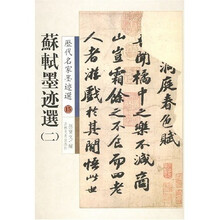 洞庭春色賦
吾聞橘中之樂不減商
山豈霜餘之不食而四老
人者遊戲於其間悟此世
歷代名家墨迹選
蘇軾墨迹選(二)